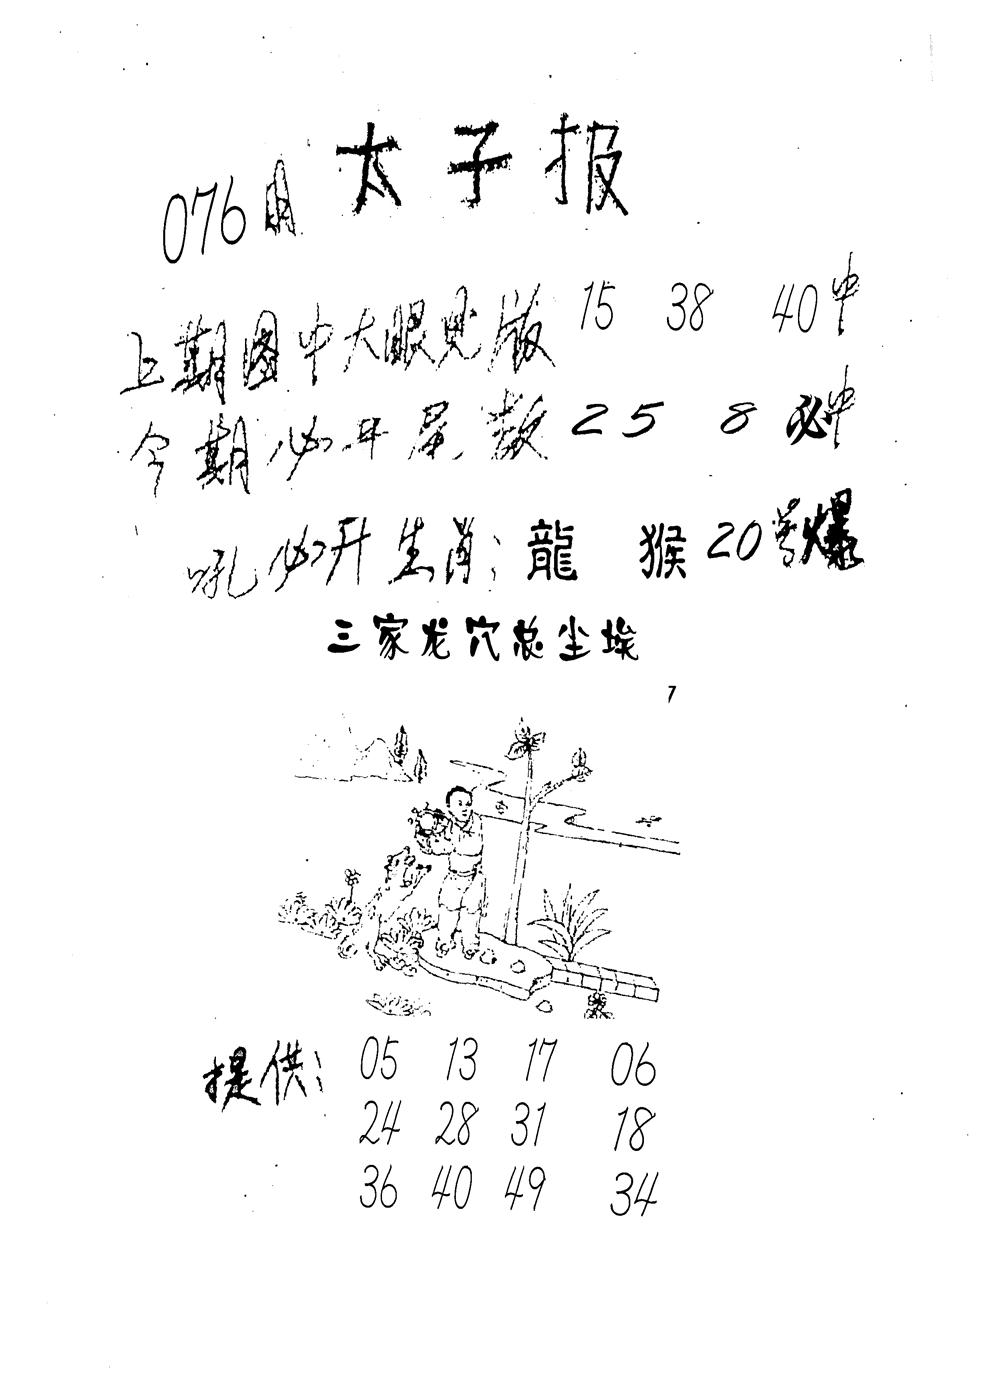 太子报
076期
上期图中大眼见版 15 38 40中
今期必开尾数 2 5 8 必中
必开生肖: 龍 猴 20号爆
三家龙穴总尘埃
7
提供: 05 13 17 06
24 28 31 18
36 40 49 34